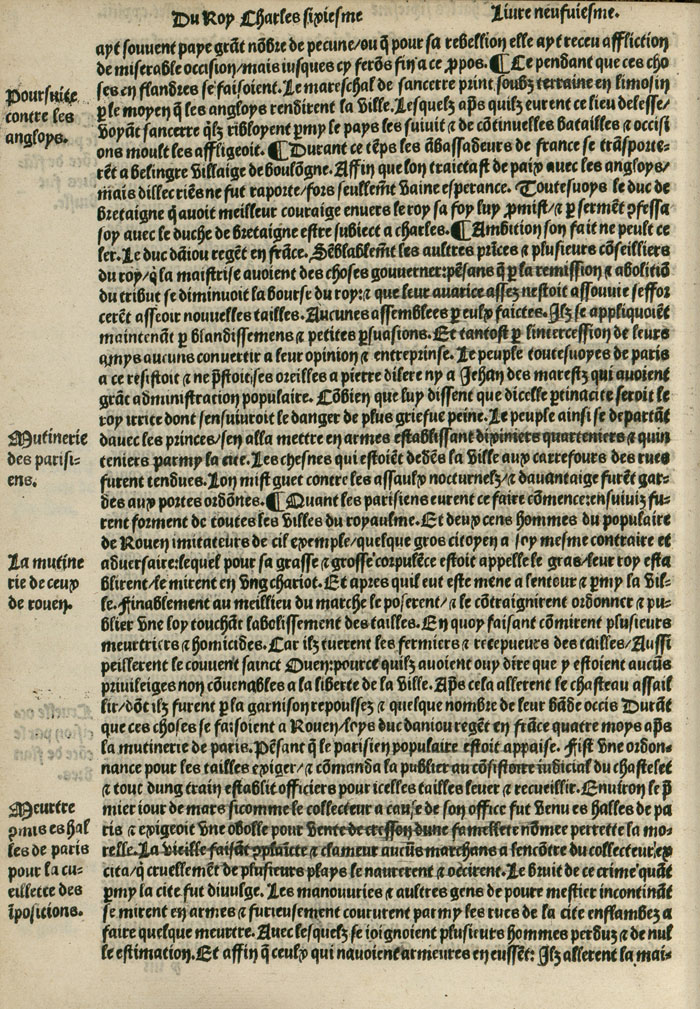 Du Roy Charles sixiesme
Liure neufuiesme.
ayt souuent paye grãt nõbre de pecune/ou q̃ pour sa rebellion elle ayt receu affliction
de miserable occision/mais iusques cy ferõs fin a ce ꝓpos. ¶ Ce pendant que ces cho
ses en flandres se faisoient. Le mareschal de sancerre print soubz terraine en limosin
ꝑ le moyen q̃ les angloys rendirent la ville. Lesquelz apſ quilz eurent ce lieu delesse/
voyãt sancerre qlz ribloyent ꝑmy le pays les suiuit ⁊ de cõtinuelles batailles ⁊ occisi
ons moult les affligeoit. ¶ Durant ce tẽps les ãbassadeurs de france se trãsporte-
rẽt a belingre villaige de boulõgne. Affin que lon traictast de paix auec les angloys/
mais dillec riẽs ne fut raporte/fors seullemẽt vaine esperance. Toutesuoys le duc de
bretaigne q̃ auoit meilleur couraige enuers le roy sa foy luy ꝓmist/⁊ ꝑ sermẽt ꝯfessa
soy auec le duche de bretaigne estre subiect a charles. ¶ Ambition son fait ne peult ce
ler. Le duc dãiou regẽt en frãce. Sẽblablemẽt les aultres prĩces ⁊ plusieurs cõseilliers
du roy/q̃ la maistrise auoient des choses gouuerner:pẽsans q̃ ꝑ la remission ⁊ abolitiõ
du tribut se diminuoit la bourse du roy:⁊ que leur auarice assez nestoit assouuie seffor
cerẽt asseoir nouuelles tailles. Aucunes assemblees ꝑ eulx faictes. Ilz se appliquoiẽt
maintenãt ꝑ blandissemens ⁊ petites ꝑsuasions. Et tantost ꝑ lintercession de leurs
amys aucuns conuertir a leur opinion ⁊ entreprinse. Le peuple toutesuoyes de paris
a ce resistoit ⁊ ne p̃stoit:ses oreilles a pierre dilere ny a Jehan des marestz qui auoient
grãt administration populaire. Cõbien que luy dissent que dicelle ꝑtinacite seroit le
roy irrite dont sensuiuroit le danger de plus griefue peine. Le peuple ainsi se departãt
dauec les princes/sen alla mettre en armes establissant dixiniers quarteniers ⁊ quin
teniers parmy la cite. Les chesnes qui estoiẽt dedẽs la ville aux carrefours des rues
furent tendues. Lon mist guet contre les assaulx nocturnelz/⁊ dauantaige furẽt gar-
des aux portes ordõnes. ¶ Quant les parisiens eurent ce faire cõmence:ensuiuiz fu-
rent forment de toutes les villes du royaulme. Et deux cens hommes du populaire
de Rouen imitateurs de cil exemple/quelque gros citoyen a soy mesme contraire et
aduersaire:lequel pour sa grasse ⁊ grosse corpulẽce estoit appelle le gras/leur roy esta
blirent/le mirent en vng chariot. Et apres quil eut este mene a lentour ⁊ ꝑmy la vil-
le. Finablement au meillieu du marche le poserent/⁊ le cõtraignirent ordonner ⁊ pu-
blier vne loy touchãt labolissement des tailles. En quoy faisant cõmirent plusieurs
meurtriers ⁊ homicides. Car ilz tuerent les fermiers ⁊ recepueurs des tailles/Aussi
peillerent le couuent sainct Ouen:pource quilz auoient ouy dire que y estoient aucũs
priuileiges non cõuenables a la liberte de la ville. Apſ cela allerent le chasteau assail
lir/dõt ilz furent ꝑ la garnison repoulsez ⁊ quelque nombre de leur bãde occis Durãt
que ces choses se faisoient a Rouen/loys duc daniou regẽt en frãce quatre moys apſ
la mutinerie de paris. Pẽsant q̃ le parisien populaire estoit appaise. Fist vne ordon-
nance pour les tailles exiger/⁊ cõmanda la publier au cõsistoire iudicial du chastelet
⁊ tout dung train establit officiers pour icelles tailles leuer ⁊ recueillir. Enuiron le p̃
mier iour de mars sicomme le collecteur a cause de son office fut venu es halles de pa
ris ⁊ exigeoit vne obolle pour vente de cresson dune famellete nõmee perrette la mo-
relle. La vieille faisãt ꝯplaĩcte ⁊ clameur aucũs marchans a lencõtre du collecteur/ex
cita/q̃ cruellemẽt de plusieurs playes le naurerent ⁊ occirent. Le bruit de ce crime quãt
ꝑmy la cite fut diuulge. Les manouuries ⁊ aultres gens de poure mestier incontinãt
se mirent en armes ⁊ furieusement coururent parmy les rues de la cite enflambez a
faire quelque meurtre. Auec lesquelz se ioignoient plusieurs hommes perduz ⁊ de nul
le estimation. Et affin q̃ ceulx qui nauoient armeures en eussẽt: Ilz allerent la mai-
Poursuite
contre les
angloys.
Mutinerie
des parisi-
ens.
La mutine
rie de ceux
de rouen.
Meurtre
ꝯmis es hal
les de paris
pour la cu-
eillette des
ĩpositions.